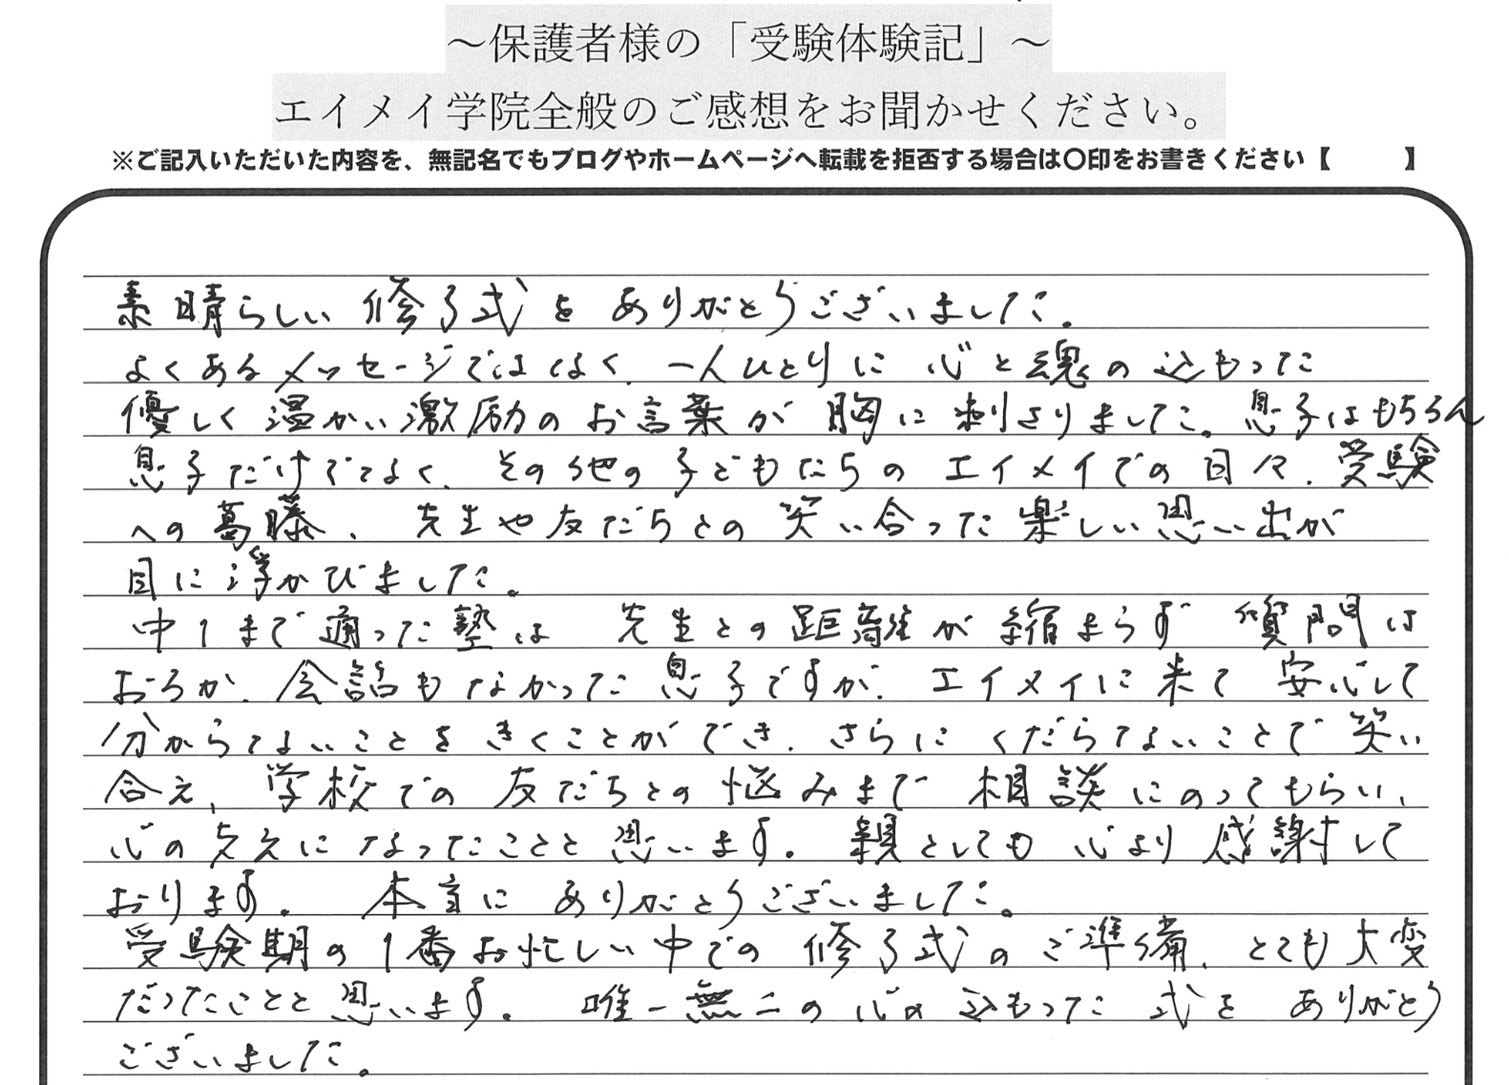 ～保護者様の「受験体験記」～
エイメイ学院全般のご感想をお聞かせください。
※ご記入いただいた内容を、無記名でもブログやホームページへ転載を拒否する場合は〇印をお書きください【　　　】
素晴らしい修了式をありがとうございました。
よくあるメッセージではなく、一人ひとりに心と魂の込もった
優しく温かい激励のお言葉が胸に刺さりました。息子はもちろん
息子だけでなく、その他の子どもたちのエイメイでの日々、受験
への葛藤、先生や友だちとの笑い合った楽しい思い出が
目に浮かびました。
中1まで通った塾は先生との距離が縮まらず質問は
おろか、会話もなかった息子ですが、エイメイに来て安心して
分からないことをきくことができ、さらにくだらないことで笑い
合え、学校での友だちとの悩みまで相談にのってもらい、
心の支えになったことと思います。親としても心より感謝して
おります。本当にありがとうございました。
受験期の1番お忙しい中での修了式のご準備、とても大変
だったことと思います。唯一無二の心の込もった式をありがとう
ございました。